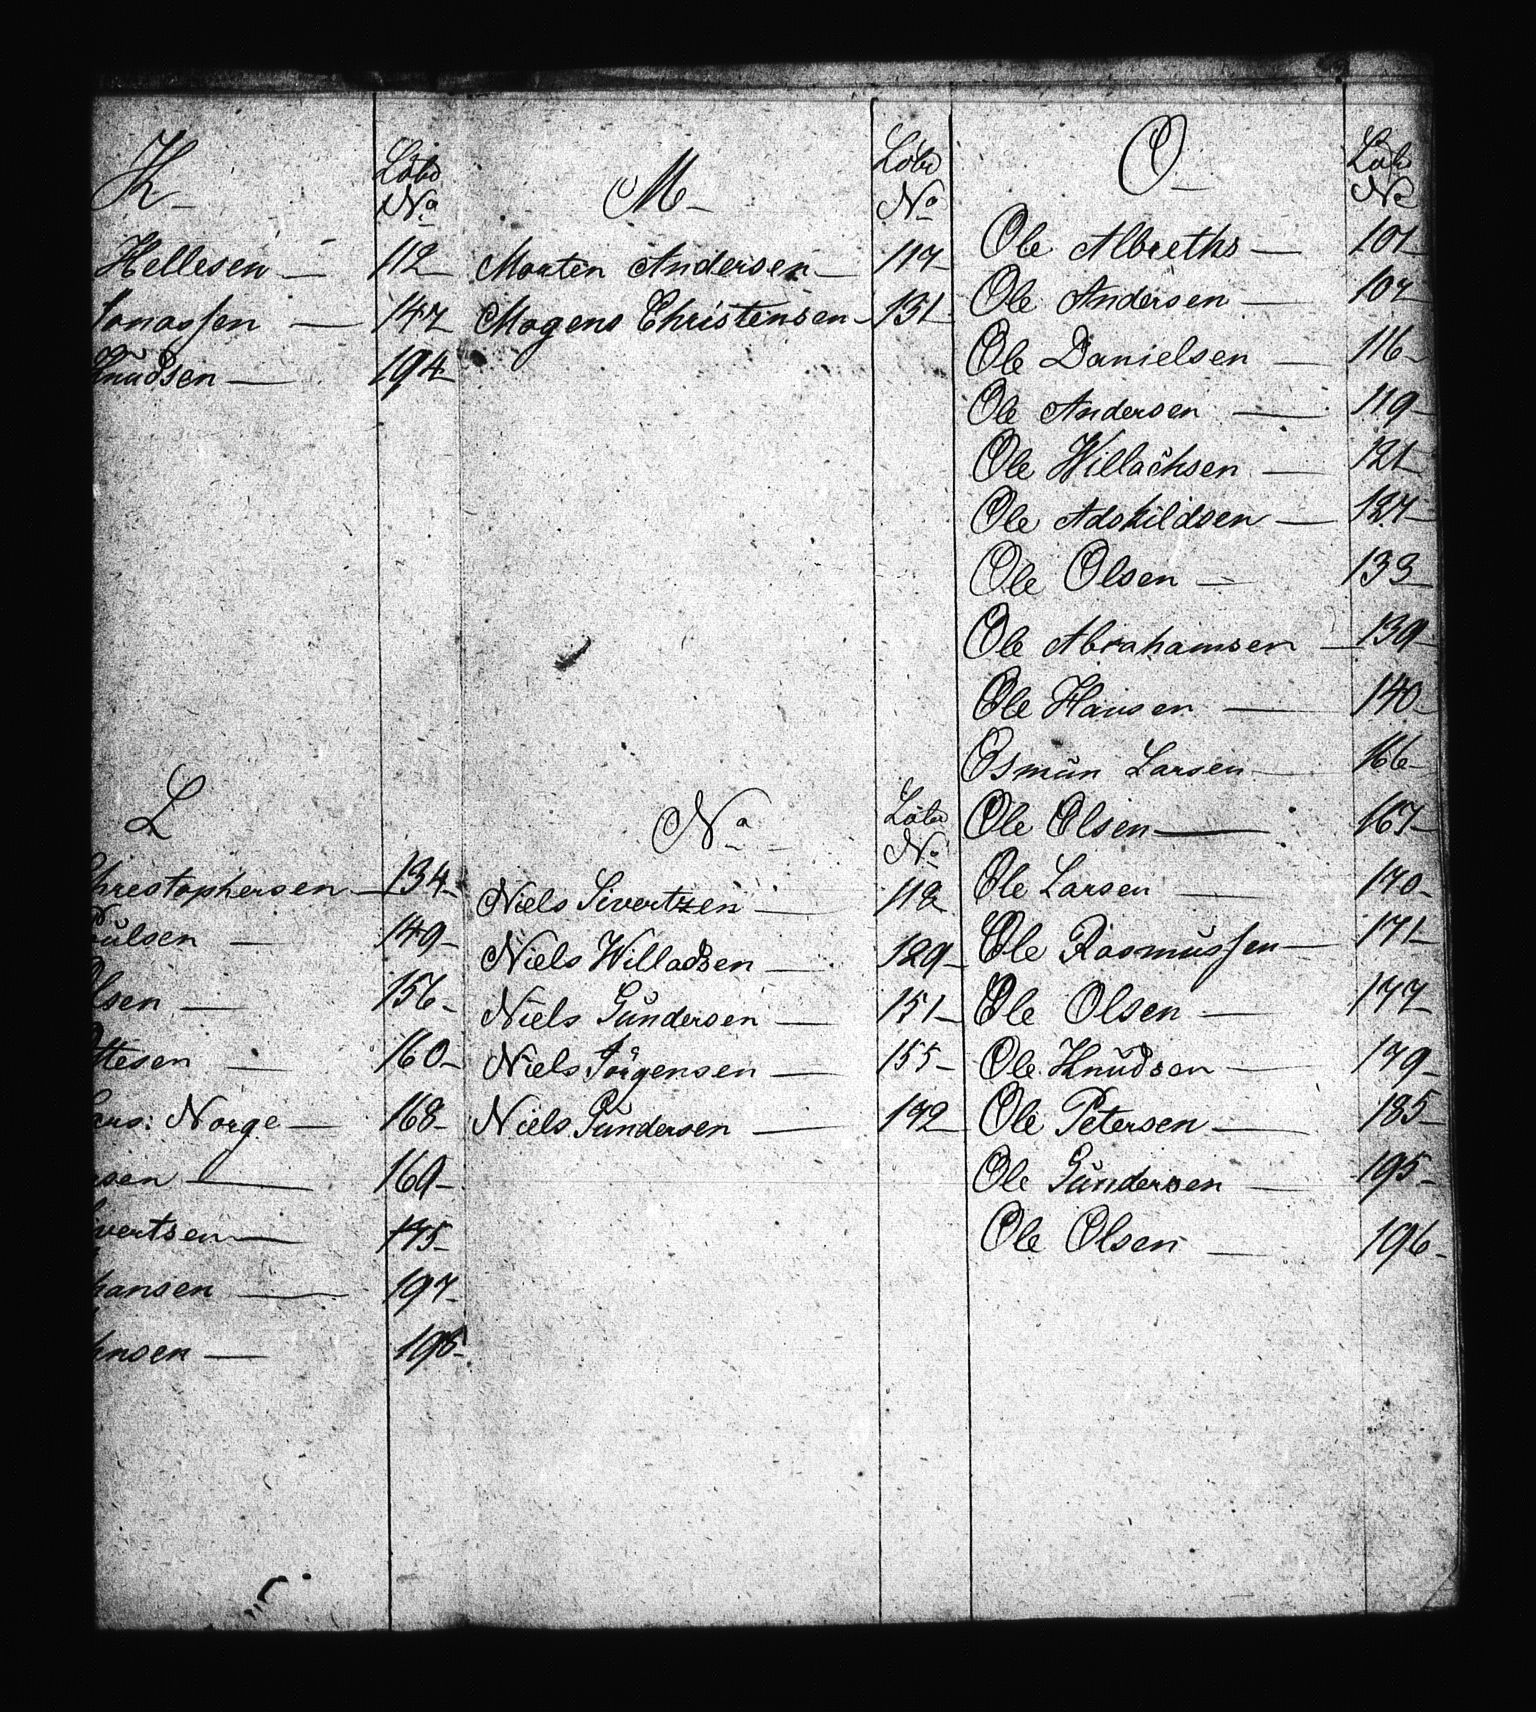 K
Løbe
No
Hellesen — 112
Jonassen — 147
Knudsen — 194
L
Christophersen — 134
Poulsen — 149
Olsen — 156
Ottesen — 160
Lars: Norge — 168
nsen — 169
ivertsen — 175
hansen — 197
hnsen — 198
M
Løbe
No
Morten Andersen — 117
Mogens Christensen — 131
N
Løbe
No
Niels Sivertzen — 118
Niels Willadsen — 129
Niels Gundersen — 151
Niels Jörgensen — 155
Niels Gundersen — 192
O
Løbe
No
Ole Albreths — 101
Ole Andersen — 107
Ole Danielsen — 116
Ole Andersen — 119
Ole Willachsen — 121
Ole Adskildsen — 127
Ole Olsen — 133
Ole Abrahamsen — 139
Ole Hansen — 140
Osmun Larsen — 166
Ole Olsen — 167
Ole Larsen — 170
Ole Rasmussen — 171
Ole Olsen — 177
Ole Knudsen — 179
Ole Petersen — 185
Ole Gundersen — 195
Ole Olsen — 196